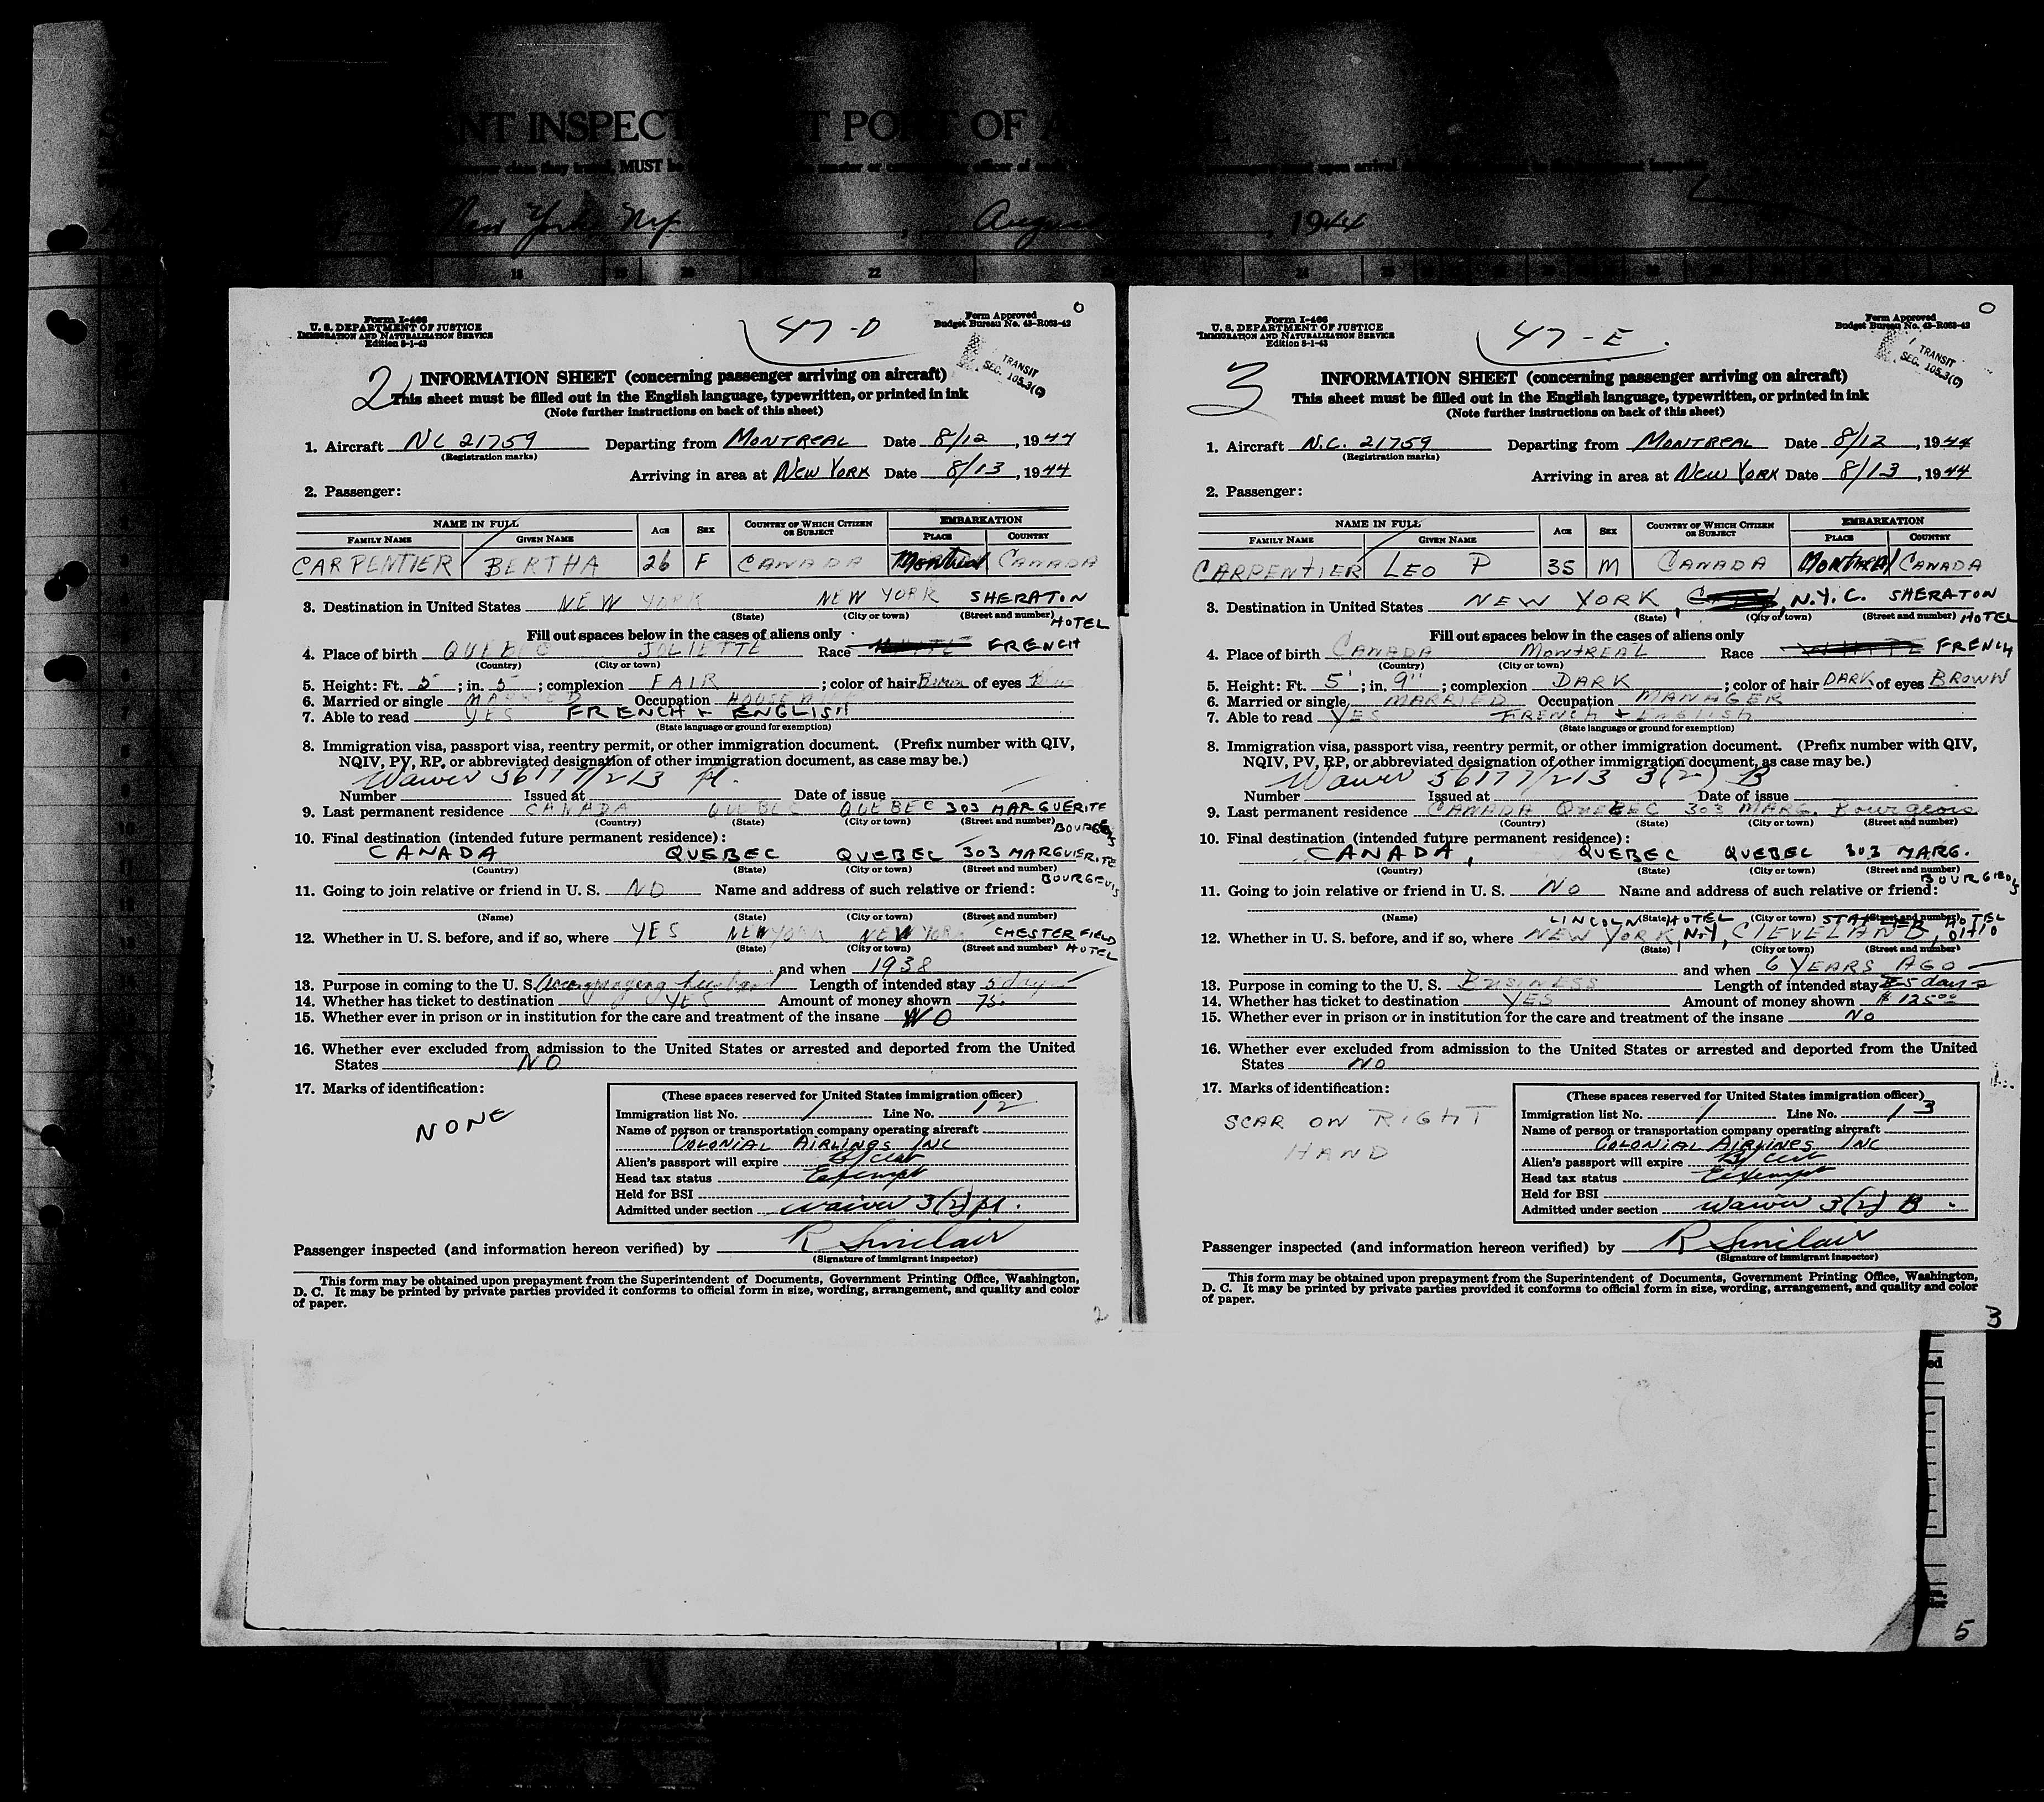 NT INSPECT
T PORT OF A
MUST be
New York, N.Y.
August
1944
18
22
24
Form I-466
U. S. DEPARTMENT OF JUSTICE
IMMIGRATION AND NATURALIZATION SERVICE
Edition 8-1-43
47-D
Form Approved
Budget Bureau No. 43-R063-42
TRANSIT
SEC. 105.3(C)
2
INFORMATION SHEET (concerning passenger arriving on aircraft)
This sheet must be filled out in the English language, typewritten, or printed in ink
(Note further instructions on back of this sheet)
1. Aircraft NC 21759 Departing from MONTREAL Date 8/12, 1944
(Registration marks)
Arriving in area at NEW YORK Date 8/13, 1944
2. Passenger:
NAME IN FULL AGE SEX COUNTRY OF WHICH CITIZEN OR SUBJECT EMBARKATION
FAMILY NAME GIVEN NAME PLACE COUNTRY
CARPENTIER BERTHA 26 F CANADA Montreal CANADA
3. Destination in United States NEW YORK NEW YORK SHERATON HOTEL
(State) (City or town) (Street and number)
Fill out spaces below in the cases of aliens only
4. Place of birth QUEBEC JOLIETTE Race WHITE FRENCH
(Country) (City or town)
5. Height: Ft. 5 ; in. 5 ; complexion FAIR ; color of hair Brown of eyes
6. Married or single MARRIED Occupation HOUSEWIFE
7. Able to read YES FRENCH & ENGLISH
(State language or ground for exemption)
8. Immigration visa, passport visa, reentry permit, or other immigration document. (Prefix number with QIV,
NQIV, PV, RP, or abbreviated designation of other immigration document, as case may be.)
Waiver 56177/213 pl.
Number Issued at Date of issue
9. Last permanent residence CANADA QUEBEC QUEBEC 303 MARGUERITE BOURGEOIS
(Country) (State) (City or town) (Street and number)
10. Final destination (intended future permanent residence):
CANADA QUEBEC QUEBEC 303 MARGUERITE BOURGEOIS
(Country) (State) (City or town) (Street and number)
11. Going to join relative or friend in U. S. NO Name and address of such relative or friend:
(Name) (State) (City or town) (Street and number)
12. Whether in U. S. before, and if so, where YES NEW YORK NEW YORK CHESTERFIELD HOTEL
(State) (City or town) (Street and number)
and when 1938
13. Purpose in coming to the U. S. Accompanying husband Length of intended stay 5 days
14. Whether has ticket to destination YES Amount of money shown 75.
15. Whether ever in prison or in institution for the care and treatment of the insane NO
16. Whether ever excluded from admission to the United States or arrested and deported from the United
States NO
17. Marks of identification:
NONE
(These spaces reserved for United States immigration officer)
Immigration list No. 1 Line No. 12
Name of person or transportation company operating aircraft
COLONIAL AIRLINES INC
Alien's passport will expire B/Cert
Head tax status Exempt
Held for BSI
Admitted under section waiver 3(2) pl.
Passenger inspected (and information hereon verified) by R Sinclair
(Signature of immigrant inspector)
This form may be obtained upon prepayment from the Superintendent of Documents, Government Printing Office, Washington,
D. C. It may be printed by private parties provided it conforms to official form in size, wording, arrangement, and quality and color
of paper.
2
Form I-466
U. S. DEPARTMENT OF JUSTICE
IMMIGRATION AND NATURALIZATION SERVICE
Edition 8-1-43
47-E.
Form Approved
Budget Bureau No. 43-R063-42
TRANSIT
SEC. 105.3(C)
3
INFORMATION SHEET (concerning passenger arriving on aircraft)
This sheet must be filled out in the English language, typewritten, or printed in ink
(Note further instructions on back of this sheet)
1. Aircraft N.C. 21759 Departing from MONTREAL Date 8/12, 1944
(Registration marks)
Arriving in area at NEW YORK Date 8/13, 1944
2. Passenger:
NAME IN FULL AGE SEX COUNTRY OF WHICH CITIZEN OR SUBJECT EMBARKATION
FAMILY NAME GIVEN NAME PLACE COUNTRY
CARPENTIER LEO P 35 M CANADA Montreal CANADA
3. Destination in United States NEW YORK, N.Y.C. SHERATON HOTEL
(State) (City or town) (Street and number)
Fill out spaces below in the cases of aliens only
4. Place of birth CANADA MONTREAL Race WHITE FRENCH
(Country) (City or town)
5. Height: Ft. 5' ; in. 9" ; complexion DARK ; color of hair DARK of eyes BROWN
6. Married or single MARRIED Occupation MANAGER
7. Able to read YES FRENCH & ENGLISH
(State language or ground for exemption)
8. Immigration visa, passport visa, reentry permit, or other immigration document. (Prefix number with QIV,
NQIV, PV, RP, or abbreviated designation of other immigration document, as case may be.)
Waiver 56177/213 3(2) B
Number Issued at Date of issue
9. Last permanent residence CANADA QUEBEC 303 MARG. Bourgeois
(Country) (State) (City or town) (Street and number)
10. Final destination (intended future permanent residence):
CANADA, QUEBEC QUEBEC 303 MARG. BOURGEOIS
(Country) (State) (City or town) (Street and number)
11. Going to join relative or friend in U. S. NO Name and address of such relative or friend:
(Name) (State) (City or town) (Street and number)
LINCOLN HOTEL STATLER HOTEL
12. Whether in U. S. before, and if so, where NEW YORK, N.Y, CLEVELAND, OHIO
(State) (City or town) (Street and number)
and when 6 YEARS AGO
13. Purpose in coming to the U. S. BUSINESS Length of intended stay 5 days
14. Whether has ticket to destination YES Amount of money shown $125.00
15. Whether ever in prison or in institution for the care and treatment of the insane NO
16. Whether ever excluded from admission to the United States or arrested and deported from the United
States NO
17. Marks of identification:
SCAR ON RIGHT
HAND
(These spaces reserved for United States immigration officer)
Immigration list No. 1 Line No. 13
Name of person or transportation company operating aircraft
COLONIAL AIRLINES INC
Alien's passport will expire B/Cert
Head tax status Exempt
Held for BSI
Admitted under section waiver 3(2) B.
Passenger inspected (and information hereon verified) by R Sinclair
(Signature of immigrant inspector)
This form may be obtained upon prepayment from the Superintendent of Documents, Government Printing Office, Washington,
D. C. It may be printed by private parties provided it conforms to official form in size, wording, arrangement, and quality and color
of paper.
3
ed
5